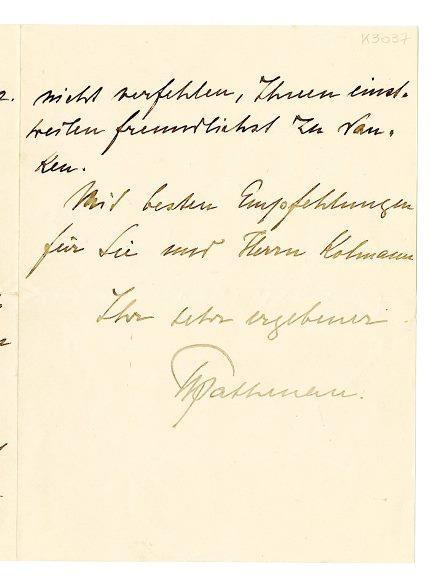 K3037
nicht verfehlen, Ihnen einst-
weilen freundlichst zu dan-
ken.
Mit besten Empfehlungen
für Sie und Herrn Kolmann
Ihr sehr ergebener
WRathenau.